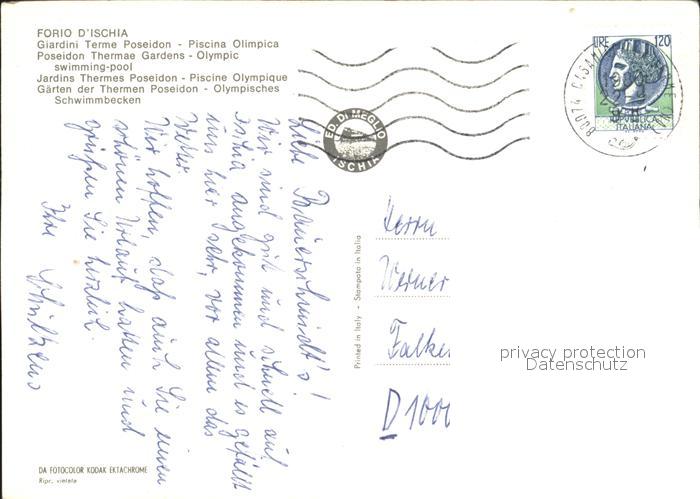 FORIO D'ISCHIA
Giardini Terme Poseidon - Piscina Olimpica
Poseidon Thermae Gardens - Olympic
swimming-pool
Jardins Thermes Poseidon - Piscine Olympique
Gärten der Thermen Poseidon - Olympisches
Schwimmbecken
LIRE 120
REPUBBLICA
ITALIANA
80074 CASAMICCIOLA
ED. DI MEGLIO
ISCHIA
Liebe
Wir sind gut und schnell auf
Ischia angekommen und es gefällt
uns hier sehr, vor allem das
Wetter.
Wir hoffen, daß auch Sie einen
schönen Urlaub hatten und
grüßen Sie herzlich.
Ihre
Printed in Italy - Stampato in Italia
Herrn
Werner
Falke
D 1000
privacy protection
Datenschutz
DA FOTOCOLOR KODAK EKTACHROME
Ripr. vietata